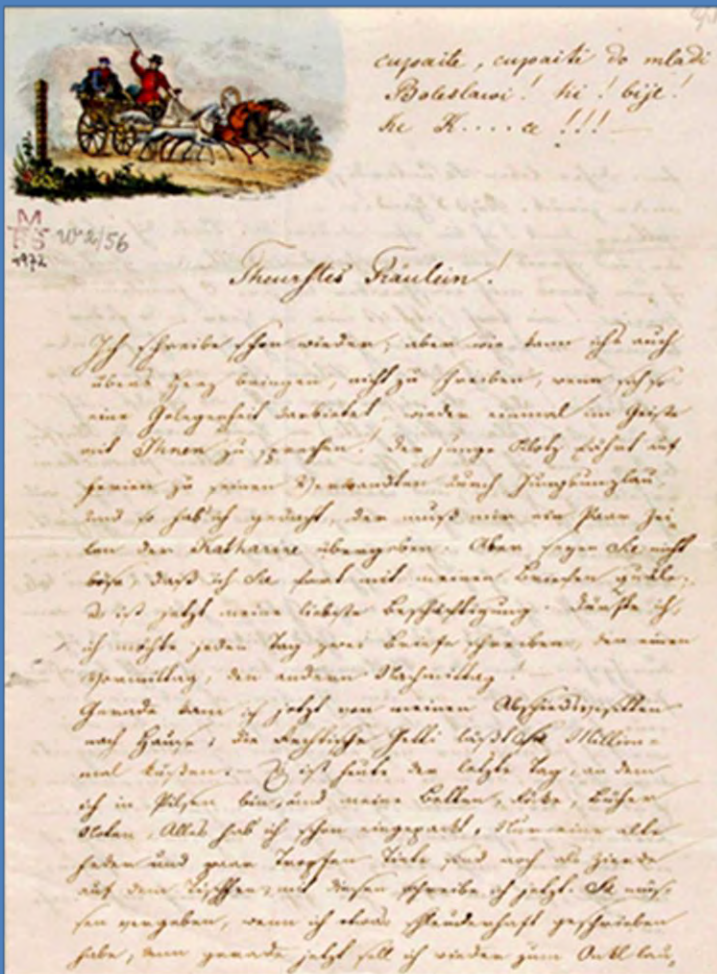 cupaite, cupaiti do mladi
Boleslawi! hi! bije!
he K....ce!!!
M
BS
1972
W 2/56
Theuerstes Fräulein!
Ich schreibe schon wieder, aber wie kann ich's auch
übers Herz bringen, nicht zu schreiben, wenn sich so
eine Gelegenheit darbietet, wieder einmal im Geiste
mit Ihnen zu sprechen. Der junge Klotz fährt auf
Ferien zu seinen Verwandten durch Jungbunzlau
und so hab ich gedacht, der muß mir ein Paar Zei-
len der Katharine übergeben. Aber seyen Sie nicht
böse, daß ich Sie fort mit meinen Briefen quäle,
es ist jetzt meine liebste Beschäftigung. Dürfte ich,
ich möchte jeden Tag zwei Briefe schreiben, den einen
Vormittag, den andern Nachmittag!
Gerade kam ich jetzt von meinen Abschiedsvisitten
nach Hause, die läßt Sie Million-
mal küßen. Es ist heute der letzte Tag, an dem
ich in Pilsen bin, und meine Betten, Bücher
Noten, Alles hab ich schon eingepackt, Nur eine alte
Feder und paar Tropfen Tinte sind noch als Zierde
auf dem Tischchen, mit diesen schreibe ich jetzt. Sie müs-
sen vergeben, wenn ich etwas schleuderhaft geschrieben
habe, denn gerade jetzt soll ich wieder zum lau,